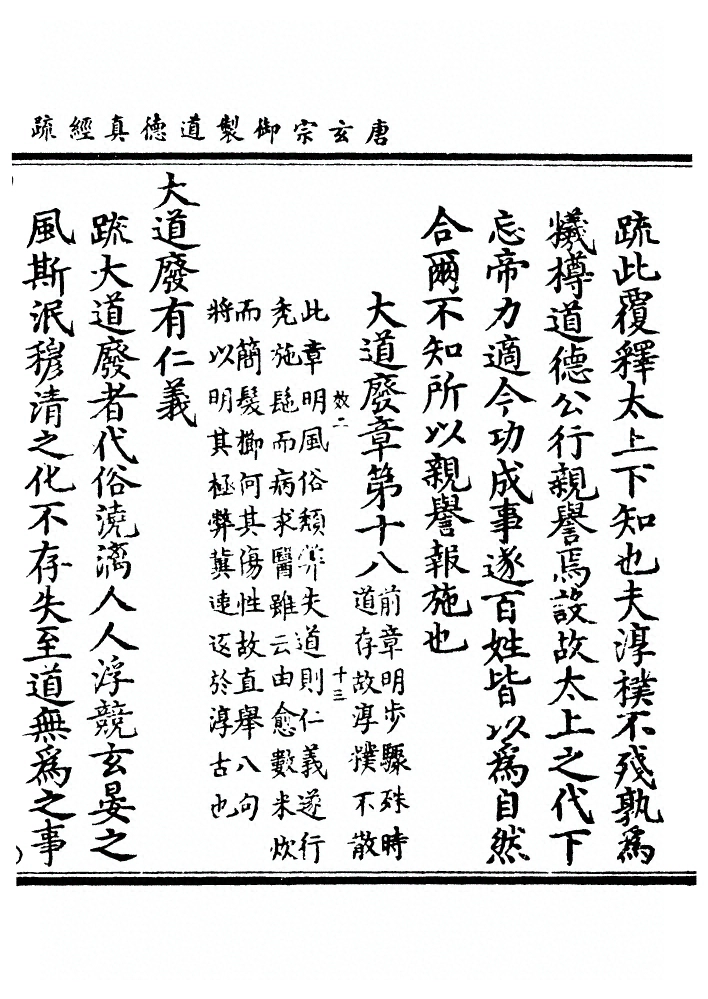 唐玄宗御製道德真經疏
疏此覆釋太上下知也夫淳樸不殘孰為
犧樽道德公行親譽焉設故太上之代下
忘帝力適今功成事遂百姓皆以為自然
合爾不知所以親譽報施也
大道廢章第十八
前章明步驟殊時
道存故淳樸不散
效二
十三
此章明風俗頹弊失道則仁義遂行
禿施髢而病求醫雖云由愈數米炊
而簡髮櫛何其傷性故直舉八句
將以明其極弊冀速返於淳古也
大道廢有仁義
疏大道廢者代俗澆漓人人浮競玄晏之
風斯泯穆清之化不存失至道無為之事